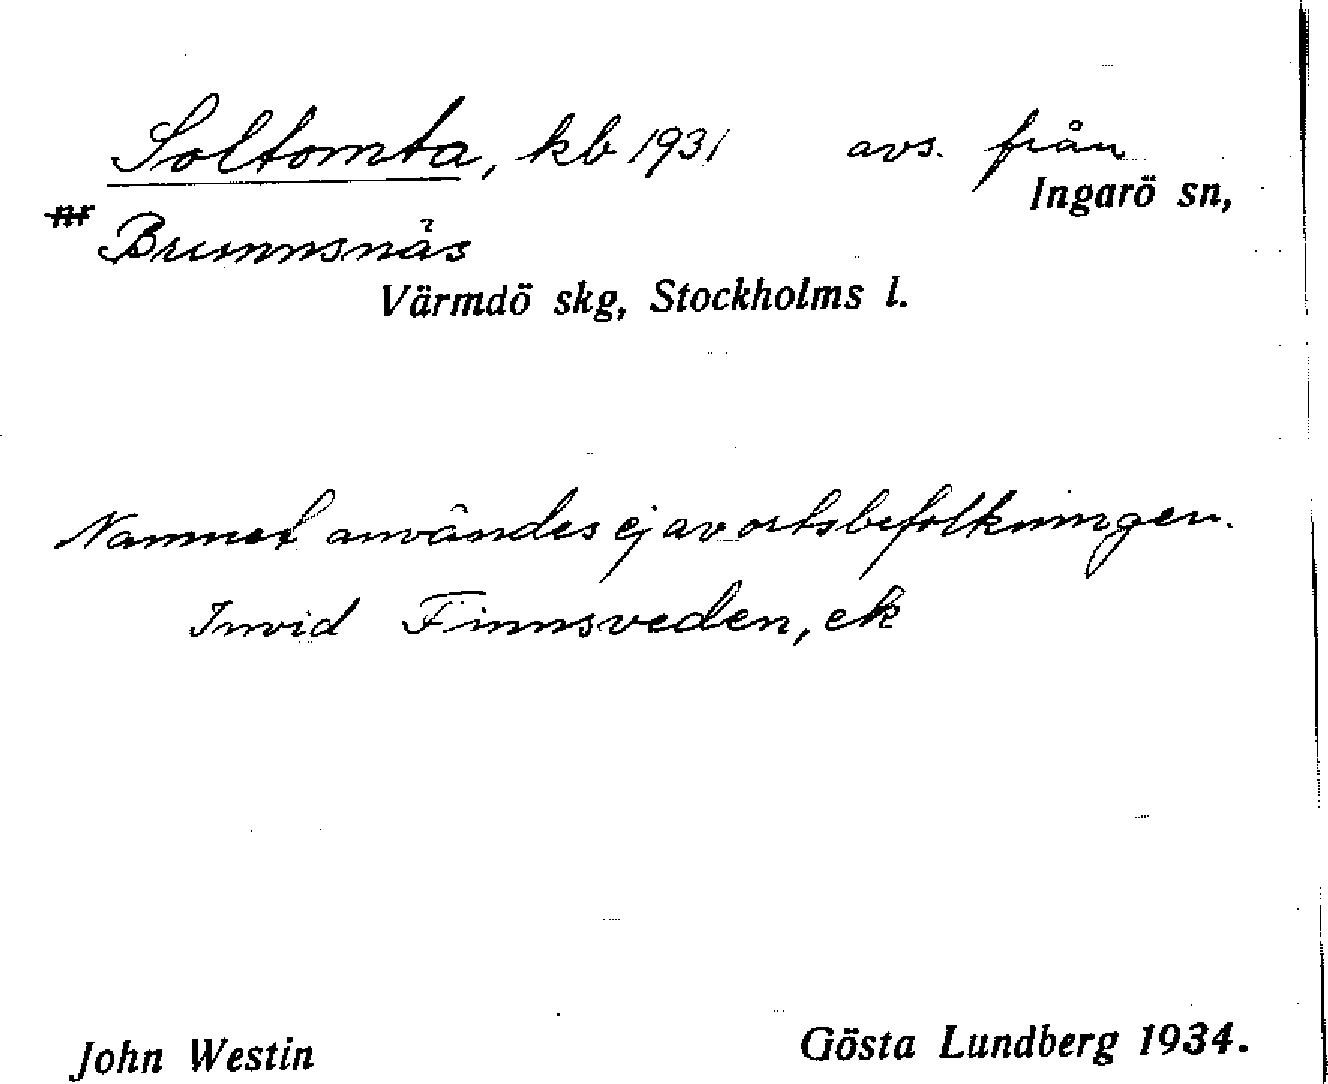 Soltomta, kb 1931 avs. från
Ingarö sn,
nr Brunnsnäs
Värmdö skg, Stockholms l.
Namnet användes ej av ortsbefolkningen.
Invid Finnsveden, ek
John Westin
Gösta Lundberg 1934.